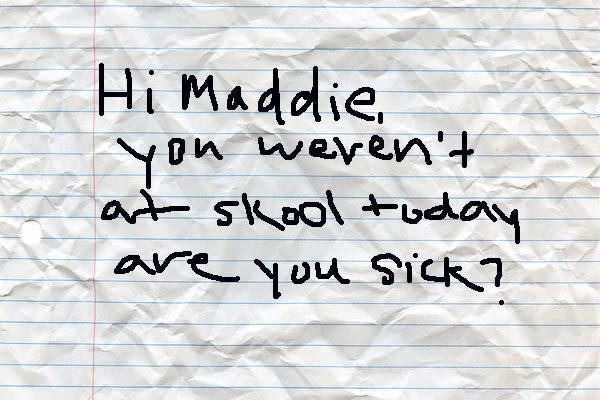 Hi Maddie,
you weren't
at skool today
are you sick?